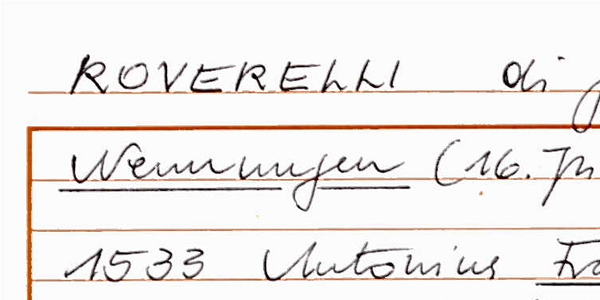 ROVERELLI di
Nennungen (16. Jh
1533 Antonius